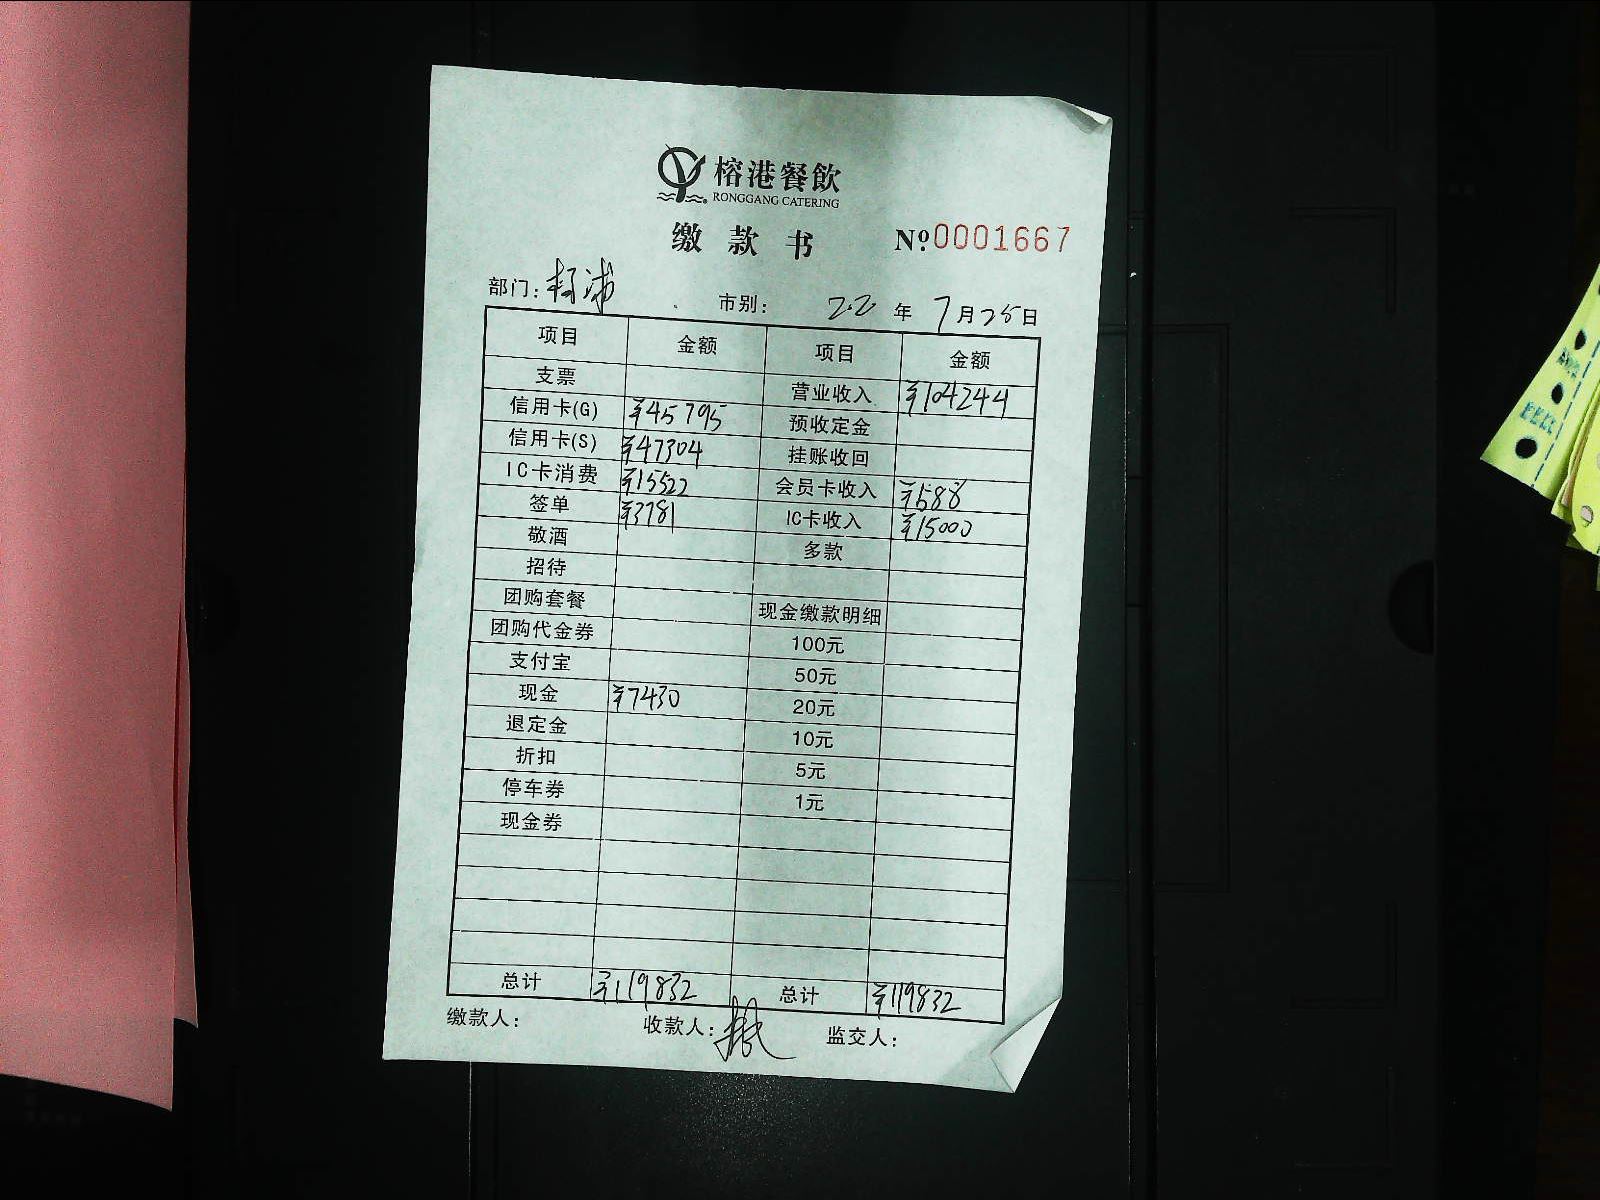 榕港餐飲
RONGGANG CATERING
缴款书 №0001667
部门: 杨浦 市别: 22年7月25日
项目 金额 项目 金额
支票 营业收入 ¥104244
信用卡(G) ¥45795 预收定金
信用卡(S) ¥47304 挂账收回
IC卡消费 ¥15522 会员卡收入 ¥588
签单 ¥3781 IC卡收入 ¥15000
敬酒 多款
招待
团购套餐 现金缴款明细
团购代金券 100元
支付宝 50元
现金 ¥7430 20元
退定金 10元
折扣 5元
停车券 1元
现金券
总计 ¥119832 总计 ¥119832
缴款人: 收款人: 监交人: